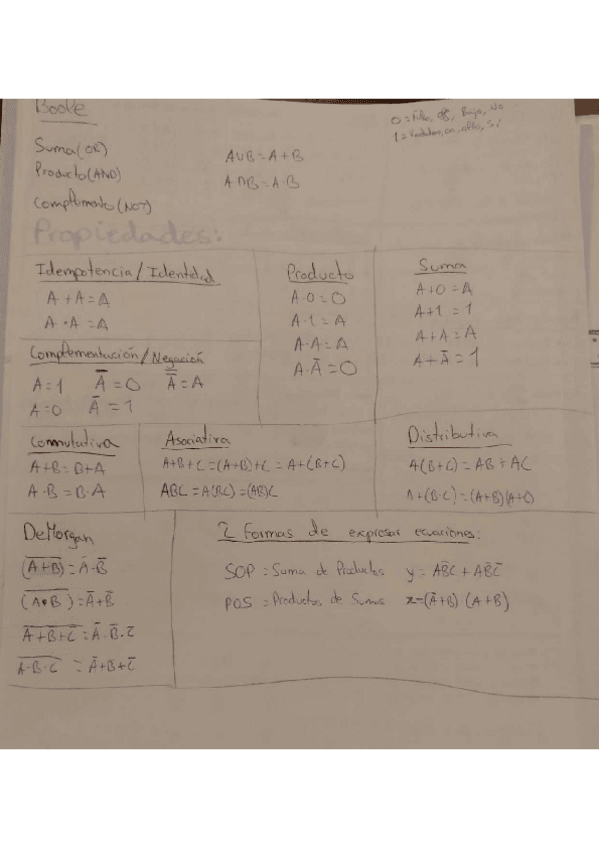 Boole
0 = Falso, off, Bajo, No
1 = Verdadero, on, alto, Si
Suma (OR)
A∪B = A + B
Producto (AND)
A∩B = A·B
Complemento (NOT)
Propiedades:
Idempotencia / Identidad
A + A = A
A · A = A
Producto
A·0 = 0
A·1 = A
A·A = A
A·Ā = 0
Suma
A+0 = A
A+1 = 1
A+A = A
A+Ā = 1
Complementación / Negación
A=1 Ā=0 A̿=A
A=0 Ā=1
Conmutativa
A+B = B+A
A·B = B·A
Asociativa
A+B+C = (A+B)+C = A+(B+C)
ABC = A(BC) = (AB)C
Distributiva
A(B+C) = AB + AC
A+(B·C) = (A+B)(A+C)
DeMorgan
(A̅+̅B̅) = Ā·B̅
(A̅·̅B̅) = Ā+B̅
A̅+̅B̅+̅C̅ = Ā·B̅·C̅
A̅·̅B̅·̅C̅ = Ā+B̅+C̅
2 Formas de expresar ecuaciones:
SOP = Suma de Productos y = AB̅C + ABC̅
POS = Productos de Sumas z=(Ā+B) (A+B)